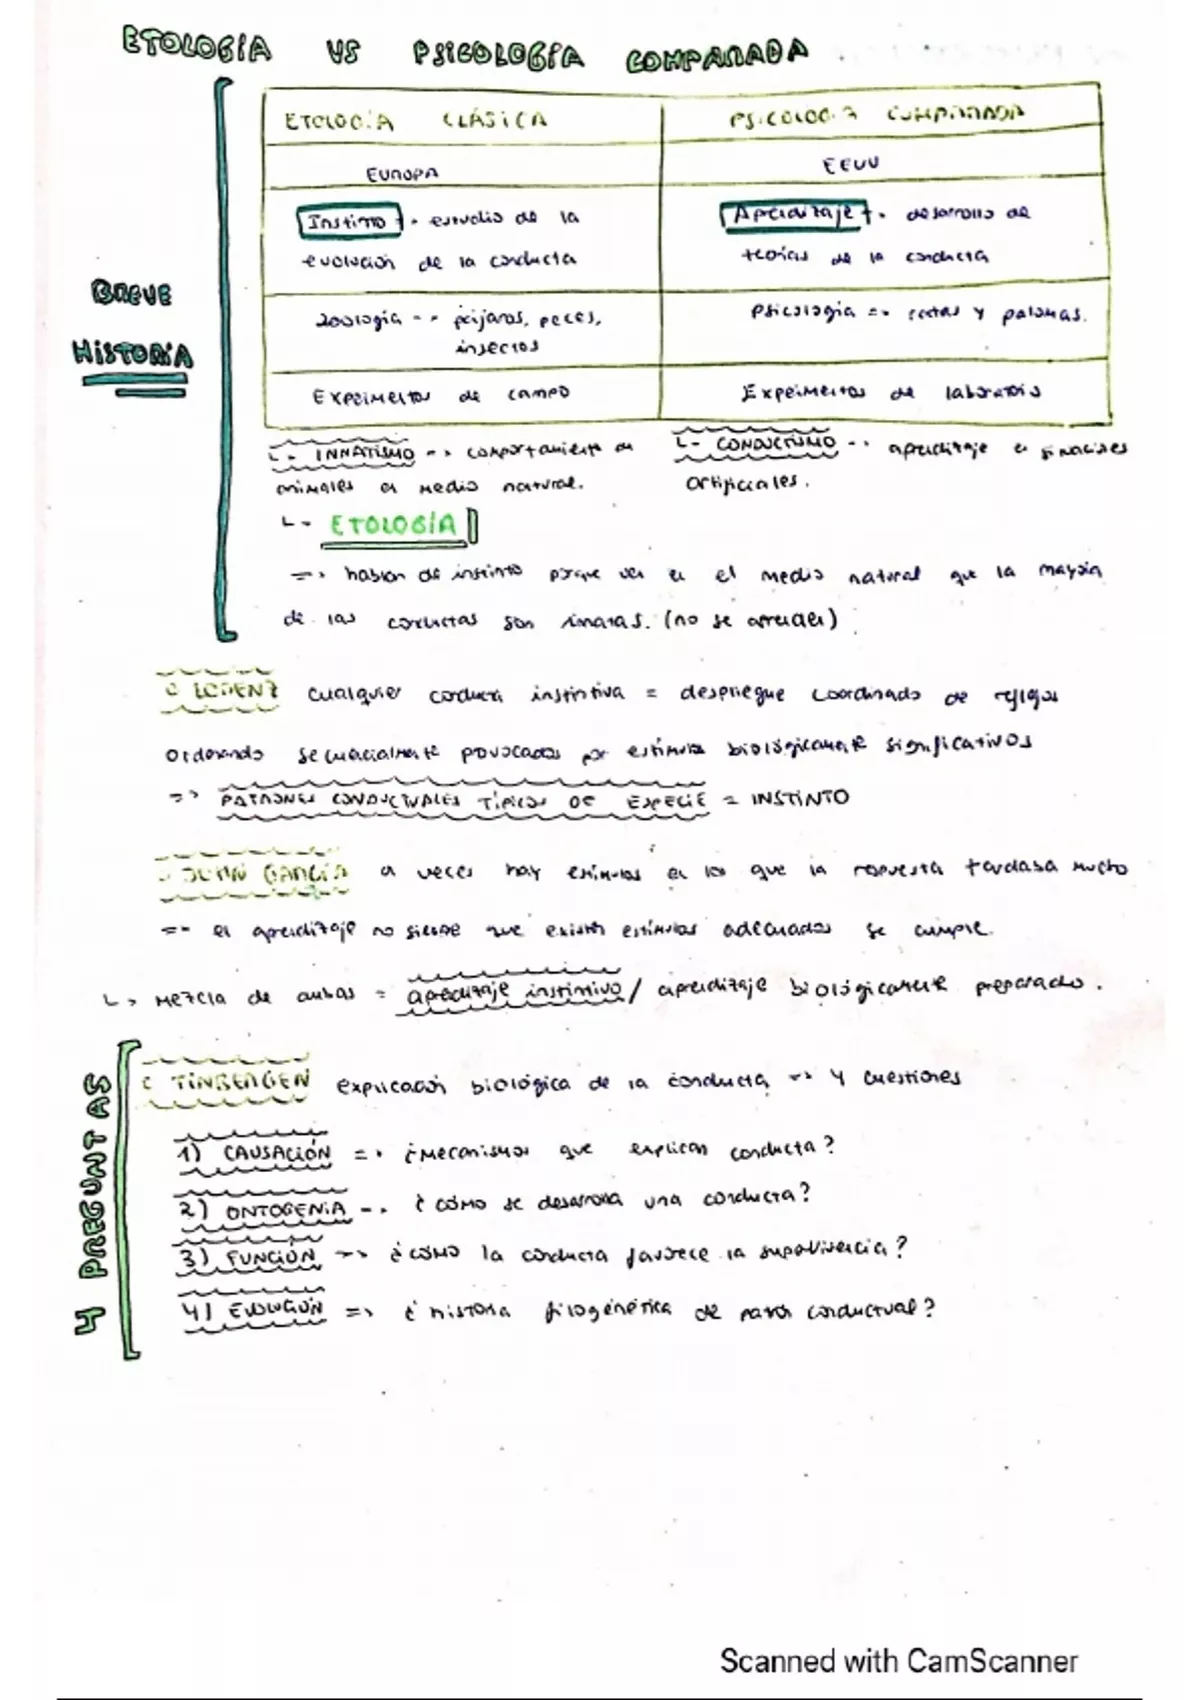 ETOLOGÍA VS PSICOLOGÍA COMPARADA
ETOLOGÍA CLÁSICA
PSICOLOGÍA COMPARADA
EUROPA
EEUU
Instinto → estudio de la
evolución de la conducta
Aprendizaje → desarrollo de
teorías de la conducta
BREVE
HISTORIA
zoología → pájaros, peces,
insectos
Psicología => ratas y palomas.
Experimentos de campo
Experimentos de laboratorio
↳ INNATISMO → comportamiento en
animales en medio natural.
↳ CONDUCTISMO → aprendizaje en situaciones
artificiales.
↳ ETOLOGÍA
=> hablan de instinto porque ven en el medio natural que la mayoría
de las conductas son innatas. (no se aprenden)
LORENZ cualquier conducta instintiva = despliegue coordinado de reflejos
ordenando secuencialmente provocados por estímulos biológicamente significativos
=> PATRONES CONDUCTUALES TÍPICOS DE ESPECIE = INSTINTO
JOHN GARCÍA a veces hay estímulos en los que la respuesta tardaba mucho
=> el aprendizaje no siempre que existen estímulos adecuados se cumple.
↳ Mezcla de ambas = aprendizaje instintivo / aprendizaje biológicamente preparado.
4 PREGUNTAS
TINBERGEN explicación biológica de la conducta => 4 cuestiones
1) CAUSACIÓN => ¿Mecanismos que explican conducta?
2) ONTOGENIA → ¿cómo se desarrolla una conducta?
3) FUNCIÓN → ¿cómo la conducta favorece la supervivencia?
4) EVOLUCIÓN => ¿historia filogenética de patrón conductual?
Scanned with CamScanner